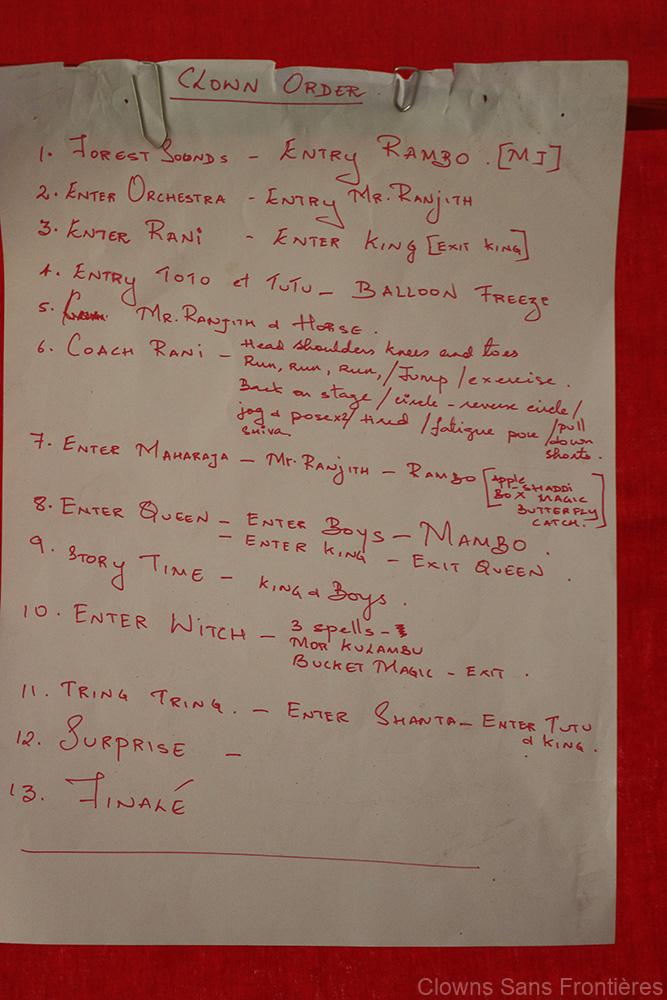 CLOWN ORDER
1. FOREST SOUNDS - ENTRY RAMBO. [MJ]
2. ENTER ORCHESTRA - ENTRY MR. RANJITH
3. ENTER RANI - ENTER KING [EXIT KING]
4. ENTRY TOTO et TUTU - BALLOON FREEZE
5. MR. RANJITH & HORSE.
6. COACH RANI - Head shoulders knees and toes
Run, run, run, / Jump / exercise.
Back on stage / circle - reverse circle /
jog & pose x2 / tired / fatigue pose / pull
shiva down
shorts.
7. ENTER MAHARAJA - Mr. RANJITH - RAMBO [Apple
SHADDI
BOX MAGIC
BUTTERFLY
CATCH.]
8. ENTER QUEEN - ENTER BOYS - MAMBO.
- ENTER KING - EXIT QUEEN.
9. STORY TIME - KING & BOYS.
10. ENTER WITCH - 3 spells -
MOR KULAMBU
BUCKET MAGIC - EXIT.
11. TRING TRING. - ENTER SHANTA - ENTER TUTU
& KING.
12. SURPRISE -
13. FINALÉ
Clowns Sans Frontières